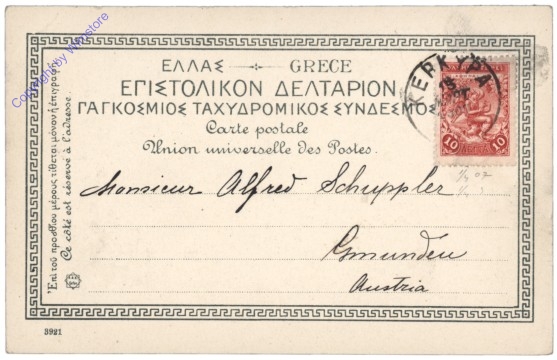 Copyright by Winstore
ΕΛΛΑΣ GRECE
ΕΠΙΣΤΟΛΙΚΟΝ ΔΕΛΤΑΡΙΟΝ
ΠΑΓΚΟΣΜΙΟΣ ΤΑΧΥΔΡΟΜΙΚΟΣ ΣΥΝΔΕΣΜΟΣ
Carte postale
Union universelle des Postes.
ΚΕΡΚΥΡΑ
10 10
Monsieur Alfred Schuppler
Gmunden
Austria
Ἐπὶ τοῦ προσθίου μέρους τίθεται μόνον ἡ ἐπιγραφή.
Ce côté est réservé à l'adresse.
3921